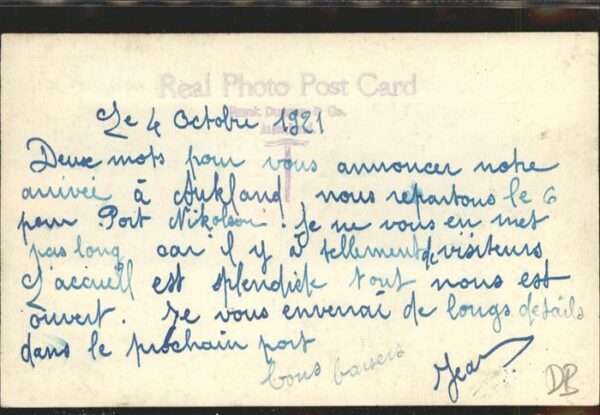 Real Photo Post Card
Le 4 Octobre 1921
Deux mots pour vous annoncer notre
arrivée à Aukland, nous repartons le 6
pour Port Nikolson. Je ne vous en met
pas long car il y à tellement de visiteurs
L'accueil est splendide tout nous est
ouvert. Je vous enverrai de longs details
dans le prochain port
bons baisers
Jean
DB